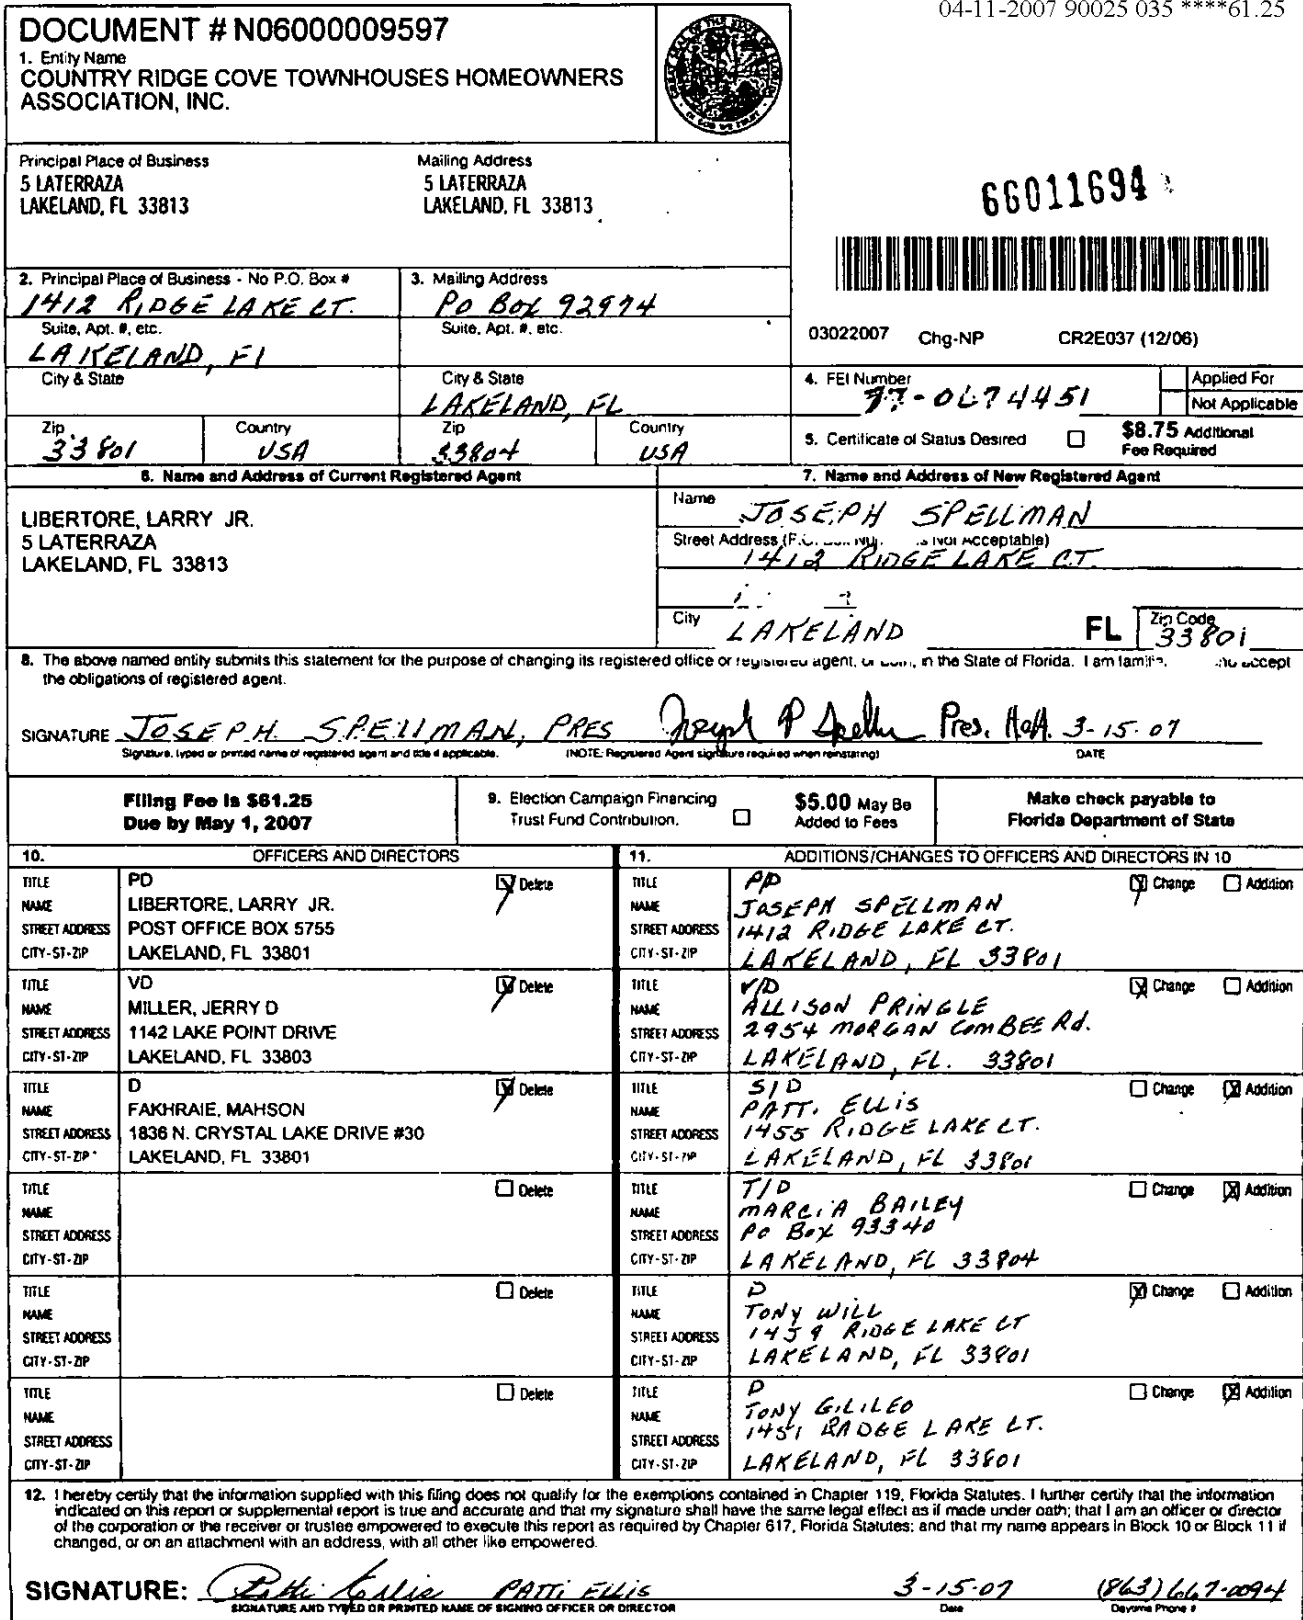 04-11-2007 90025 035 ****61.25
DOCUMENT # N06000009597
1. Entity Name
COUNTRY RIDGE COVE TOWNHOUSES HOMEOWNERS
ASSOCIATION, INC.
Principal Place of Business Mailing Address
5 LATERRAZA 5 LATERRAZA
LAKELAND, FL 33813 LAKELAND, FL 33813
66011694
2. Principal Place of Business - No P.O. Box # 3. Mailing Address
1412 RIDGE LAKE CT. PO BOX 92974
Suite, Apt. #, etc. Suite, Apt. #, etc.
LAKELAND, Fl
03022007 Chg-NP CR2E037 (12/06)
City & State City & State
LAKELAND, FL
4. FEI Number Applied For
-0674451 Not Applicable
Zip Country Zip Country
33801 USA 33804 USA
5. Certificate of Status Desired ☐ $8.75 Additional
Fee Required
6. Name and Address of Current Registered Agent
LIBERTORE, LARRY JR.
5 LATERRAZA
LAKELAND, FL 33813
7. Name and Address of New Registered Agent
Name JOSEPH SPELLMAN
Street Address Not Acceptable)
1412 RIDGE LAKE CT.
City LAKELAND FL Zip Code 33801
8. The above named entity submits this statement for the purpose of changing its registered office or registered agent, or both, in the State of Florida. I am accept
the obligations of registered agent.
SIGNATURE JOSEPH SPELLMAN, PRES Joseph P Spellm Pres. HOA. 3-15-07
Signature, typed or printed name of registered agent and title if applicable. (NOTE: Registered Agent signature required when reinstating) DATE
Filing Fee is $61.25
Due by May 1, 2007
9. Election Campaign Financing
Trust Fund Contribution. ☐
$5.00 May Be
Added to Fees
Make check payable to
Florida Department of State
10. OFFICERS AND DIRECTORS
TITLE PD Delete
NAME LIBERTORE, LARRY JR.
STREET ADDRESS POST OFFICE BOX 5755
CITY-ST-ZIP LAKELAND, FL 33801
TITLE VD Delete
NAME MILLER, JERRY D
STREET ADDRESS 1142 LAKE POINT DRIVE
CITY-ST-ZIP LAKELAND, FL 33803
TITLE D Delete
NAME FAKHRAIE, MAHSON
STREET ADDRESS 1836 N. CRYSTAL LAKE DRIVE #30
CITY-ST-ZIP LAKELAND, FL 33801
TITLE Delete
NAME
STREET ADDRESS
CITY-ST-ZIP
TITLE Delete
NAME
STREET ADDRESS
CITY-ST-ZIP
TITLE Delete
NAME
STREET ADDRESS
CITY-ST-ZIP
11. ADDITIONS/CHANGES TO OFFICERS AND DIRECTORS IN 10
TITLE P/D Change Addition
NAME JOSEPH SPELLMAN
STREET ADDRESS 1412 RIDGE LAKE CT.
CITY-ST-ZIP LAKELAND, FL 33801
TITLE V/D Change Addition
NAME ALLISON PRINGLE
STREET ADDRESS 2954 MORGAN COMBEE Rd.
CITY-ST-ZIP LAKELAND, FL. 33801
TITLE S/D Change Addition
NAME PATTi ELLiS
STREET ADDRESS 1455 RIDGE LAKE CT.
CITY-ST-ZIP LAKELAND, FL 33801
TITLE T/D Change Addition
NAME MARCiA BAILEY
STREET ADDRESS PO BOX 93340
CITY-ST-ZIP LAKELAND, FL 33804
TITLE D Change Addition
NAME TONY WILL
STREET ADDRESS 1459 RIDGE LAKE CT
CITY-ST-ZIP LAKELAND, FL 33801
TITLE D Change Addition
NAME TONY GILILEO
STREET ADDRESS 1451 RADGE LAKE CT.
CITY-ST-ZIP LAKELAND, FL 33801
12. I hereby certify that the information supplied with this filing does not qualify for the exemptions contained in Chapter 119, Florida Statutes. I further certify that the information
indicated on this report or supplemental report is true and accurate and that my signature shall have the same legal effect as if made under oath; that I am an officer or director
of the corporation or the receiver or trustee empowered to execute this report as required by Chapter 617, Florida Statutes; and that my name appears in Block 10 or Block 11 if
changed, or on an attachment with an address, with all other like empowered.
SIGNATURE: Patti Ellis PATTi ELLIS 3-15-07 (863) 667-0094
SIGNATURE AND TYPED OR PRINTED NAME OF SIGNING OFFICER OR DIRECTOR Date Daytime Phone #